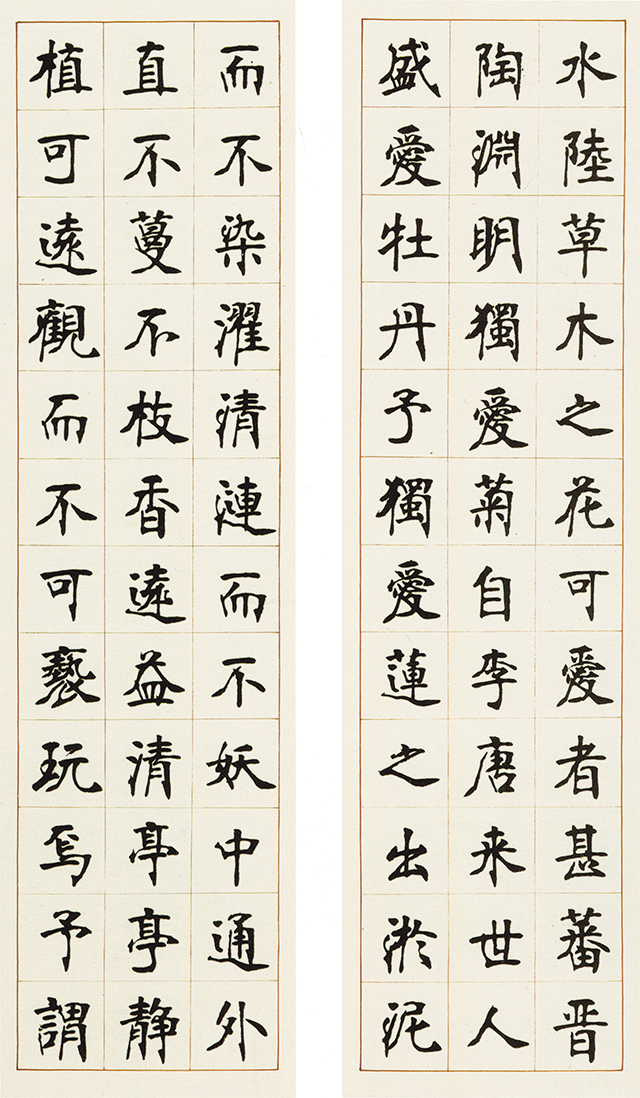 水陸草木之花可愛者甚蕃晋
陶淵明獨愛菊自李唐来世人
盛愛牡丹予獨愛蓮之出淤泥
而不染濯清漣而不妖中通外
直不蔓不枝香遠益清亭亭静
植可遠觀而不可褻玩焉予謂